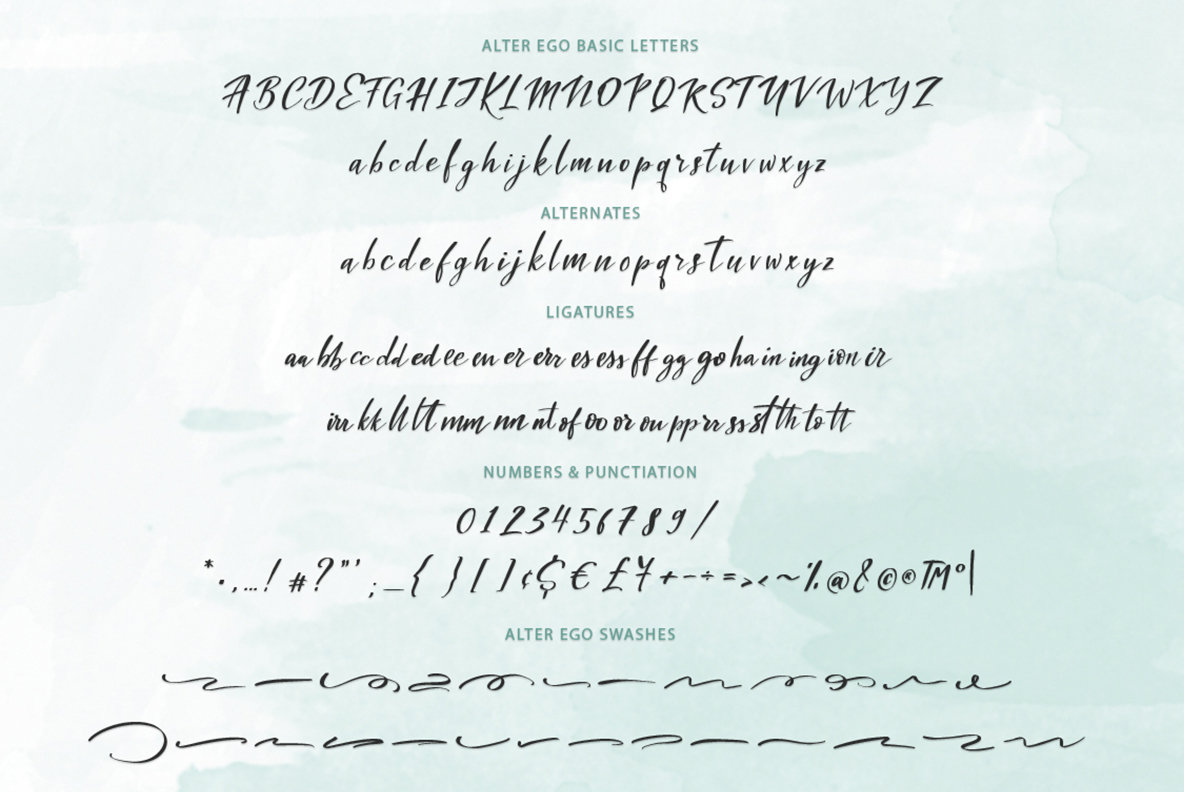 ALTER EGO BASIC LETTERS
ABCDEFGHIJKLMNOPQRSTUVWXYZ
abcdefghijklmnopqrstuvwxyz
ALTERNATES
abcdefghijklmnopqrstuvwxyz
LIGATURES
aa bb cc dd ed ee en er err es ess ff gg go ha in ing ion ir
irr kk ll lt mm nn nt of oo or ou pp rr ss st th to tt
NUMBERS & PUNCTIATION
0123456789/
*·,…!#?"';_{}[]¢$€£¥+−÷=><~%@&©®™°|
ALTER EGO SWASHES